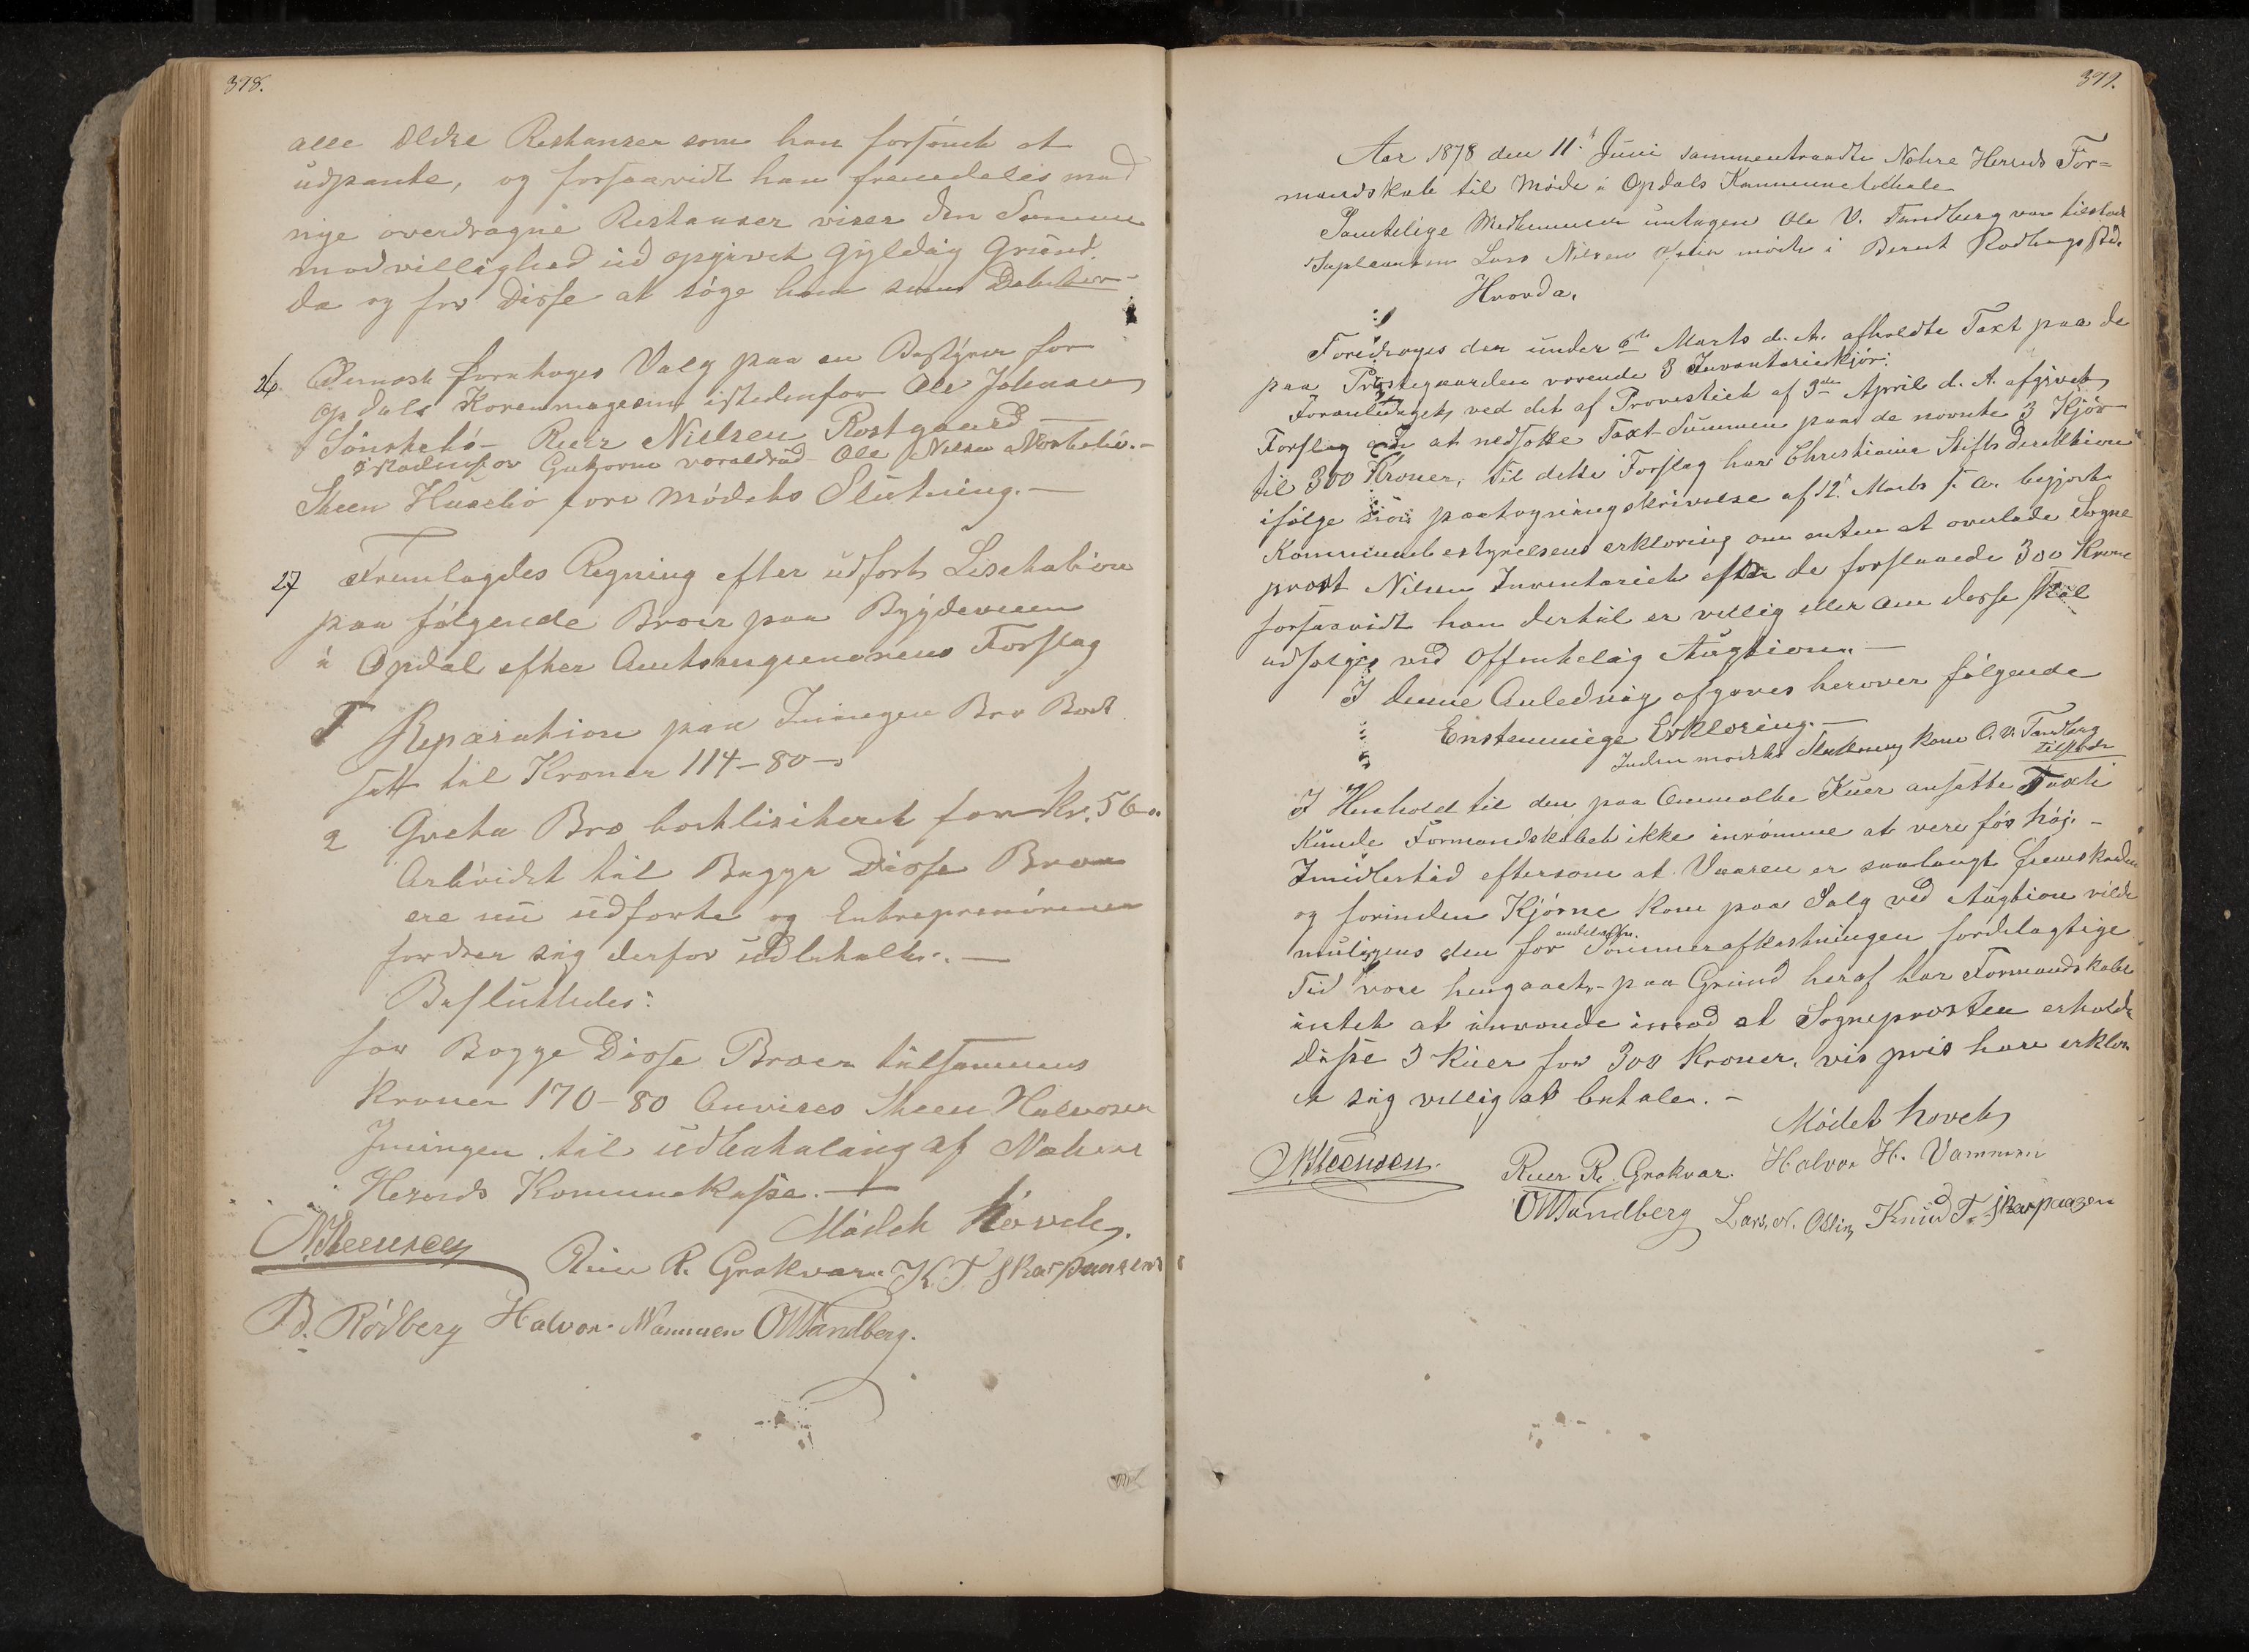 378.
alle Ældre Restanser som han forsömt at
udpante, og forsaavidt han fremdeles med
nye overdragne Restanser viser den Samme
modvillighed ud opgivet Gyldig Grund.
da og for Disse at söge ham som Debitor-
26. Dernæst foretoges Valg paa en Bestÿrer for
Opdals Kornmagasin istedenfor Ole Johansen
Sönstebö- Ruer Nielsen Rostgaard
istedenfor Guttorm Ole Nilsen Norbebö.-
Steen Husebö före Mödets Slutning.-
27 Fremlagdes Regning efter udfört Lisetation
paa fölgende Broer paa Bÿgdeveien
i Opdal efter Amtsingeniörens Forslag
1 Reparation paa Iningen Bro Bort
satt til Kroner 114-80-
2 Grota Bro bortlisiteret for Kr. 56..
Arbeidet til Begge Disse Broer
ere nu udförte og Entreprenörerne
fordrer sig derfor udbetalt.-
Besluttedes:
for Begge Disse Broer tilsammens
Kroner 170-80 Anvises Steen Halvorsen
Iningen til udbetaling af Nohre
Hereds Kommunekasse.-
Mödet hævet.
NSteensen Ruer R. Grokvam K. T. Skarpaasen
B. Rödberg Halvor Nammen OWandberg.
379.
Aar 1878 den 11te Juni sammentraadte Nohre Herreds For=
mandskab til Möde i Opdals Kommunelokale
Samtelige Medlemmer untagen Ole V. Tandberg var tilstede
Supleanten Lars Nilsen Östin mödte i Bernt Rodbergs Sted.
Hvorda.
Foredroges den under 6te Marts d. A. afholdte Taxt paa de
paa Præstegaarden værende 3 Inventariekjör:
Foranlediget, ved det af Provstiet af 9de April d. A. afgivet
Forslag om at nedsætte Taxt-Summen paa de nævnte 3 Kjör
til 300 Kroner, Til dette Forslag har Christiania Stiftsdirektion
ifölge sin paategningskrivelse af 12te Marts s. A. begjært
Kommunebestyrelsens erklæring om enten at overlade Sogne
prost Nilsen Inventariet efter de forslaaede 300 Kroner
forsaavidt han dertil er villig eller om Disse skal
udsælges ved Offentelig Augtion.-
I denne Anledning afgaves herover fölgende
Enstemmige Erklæring.-
Inden mödets Slutning kom O. V. Tandberg
tilstede
I Henhold til den paa Ommelte Kuer ansatte Taxt
Kunde Formandskabet ikke inrömme at vere for höj.-
Imidlertid eftersom at Vaaren er saalangt fremskreden
og forinden Kjörne Kom paa Salg ved Augtion vilde
muligens den for Sommerafkastningen fordelagtige
Tid vore hengaaet,- paa Grund heraf har Formandskabet
intet at invende imod at Sogneprosten erholder
disse 3 Kuer for 300 Kroner, vis pris han erklær
er sig villig at betale.-
Mödet hævet
NSteensen. Ruer R. Grokvam. Halvor H. Vammen
OWandberg Lars. N. Östin Knud T. Skarpaasen